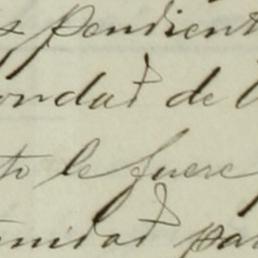 s pendient
ondad de l
to le fuere
nidad pa